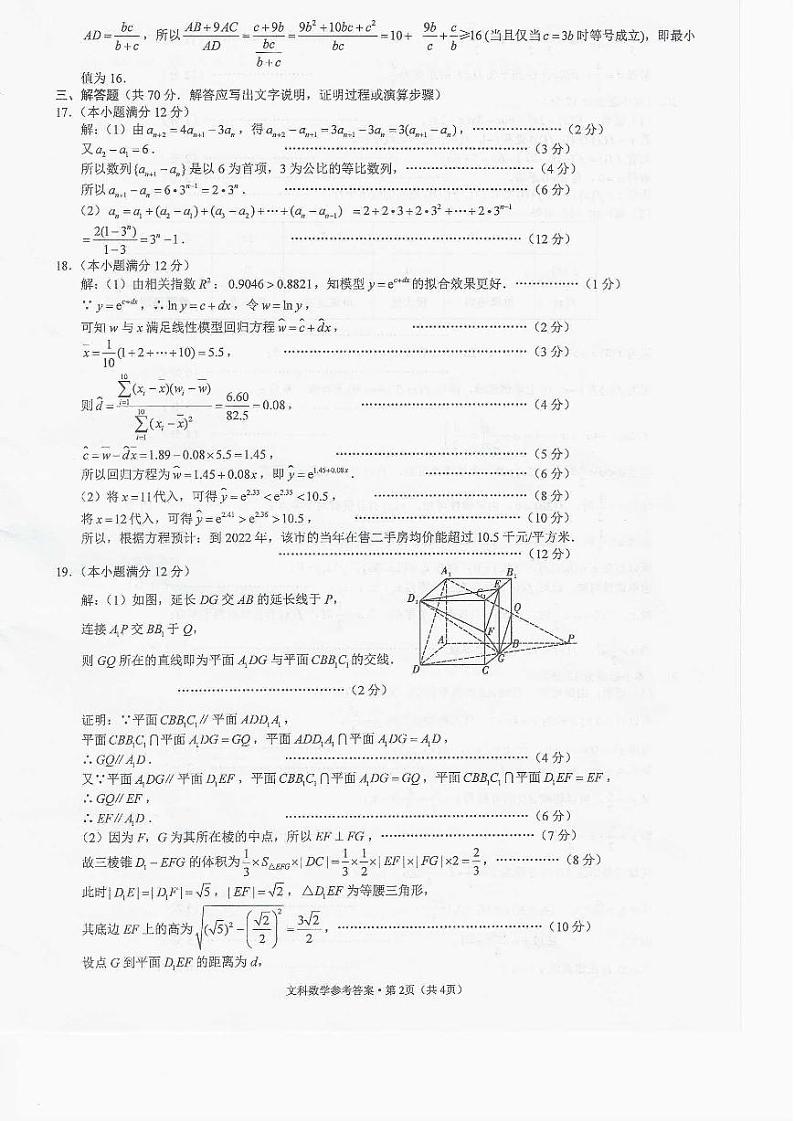 AD = bc/(b+c)，所以 (AB+9AC)/AD = (c+9b)/(bc/(b+c)) = (9b²+10bc+c²)/bc = 10+ 9b/c + c/b ≥16 (当且仅当 c=3b 时等号成立)，即最小
值为 16．
三、解答题（共 70 分．解答应写出文字说明，证明过程或演算步骤）
17．（本小题满分 12 分）
解：（1）由 aₙ₊₂ = 4aₙ₊₁ −3aₙ，得 aₙ₊₂ − aₙ₊₁ = 3aₙ₊₁ −3aₙ = 3(aₙ₊₁ − aₙ)，………………（2 分）
又 a₂ − a₁ = 6． ………………（3 分）
所以数列{aₙ₊₁ − aₙ}是以 6 为首项，3 为公比的等比数列，………………（4 分）
所以 aₙ₊₁ − aₙ = 6•3ⁿ⁻¹ = 2•3ⁿ． ………………（6 分）
（2）aₙ = a₁ + (a₂ − a₁) + (a₃ − a₂) + ⋯ + (aₙ − aₙ₋₁) = 2+2•3+2•3² + ⋯ + 2•3ⁿ⁻¹
= 2(1−3ⁿ)/(1−3) = 3ⁿ −1． ………………（12 分）
18．（本小题满分 12 分）
解：（1）由相关指数 R²：0.9046 > 0.8821，知模型 y = e^(c+dx) 的拟合效果更好．……………（1 分）
∵ y = e^(c+dx)，∴ ln y = c + dx，令 w = ln y，
可知 w 与 x 满足线性模型回归方程 ŵ = ĉ + d̂x， ………………（2 分）
x̄ = 1/10 (1+2+⋯+10) = 5.5， ………………（3 分）
则 d̂ = ∑ᵢ₌₁¹⁰(xᵢ − x̄)(wᵢ − w̄) / ∑ᵢ₌₁¹⁰(xᵢ − x̄)² = 6.60/82.5 = 0.08， ………………（4 分）
ĉ = w̄ − d̂x̄ = 1.89 − 0.08×5.5 = 1.45， ………………（5 分）
所以回归方程为 ŵ = 1.45+0.08x，即 ŷ = e^(1.45+0.08x)． ………………（6 分）
（2）将 x=11代入，可得 ŷ = e^2.33 < e^2.35 < 10.5， ………………（8 分）
将 x=12 代入，可得 ŷ = e^2.41 > e^2.36 > 10.5， ………………（10 分）
所以，根据方程预计：到 2022 年，该市的当年在售二手房均价能超过 10.5 千元/平方米．
………………（12 分）
19．（本小题满分 12 分）
解：（1）如图，延长 DG 交 AB 的延长线于 P，
连接 A₁P 交 BB₁ 于 Q，
则 GQ 所在的直线即为平面 A₁DG 与平面 CBB₁C₁ 的交线．
………………（2 分）
A₁ B₁
E
D₁ C₁
Q
F
A B P
G
D C
证明：∵平面 CBB₁C₁ // 平面 ADD₁A₁，
平面 CBB₁C₁ ∩ 平面 A₁DG = GQ，平面 ADD₁A₁ ∩ 平面 A₁DG = A₁D，
∴ GQ // A₁D． ………………（4 分）
又∵平面 A₁DG // 平面 D₁EF，平面 CBB₁C₁ ∩ 平面 A₁DG = GQ，平面 CBB₁C₁ ∩ 平面 D₁EF = EF，
∴ GQ // EF，
∴ EF // A₁D． ………………（6 分）
（2）因为 F，G 为其所在棱的中点，所以 EF ⊥ FG，………………（7 分）
故三棱锥 D₁ − EFG 的体积为 1/3 × S△EFG × | DC | = 1/3 × 1/2 × | EF | × | FG | ×2 = 2/3，……………（8 分）
此时 | D₁E | = | D₁F | = √5，| EF | = √2，△D₁EF 为等腰三角形，
其底边 EF 上的高为 √((√5)² − (√2/2)²) = 3√2/2，………………（10 分）
设点 G 到平面 D₁EF 的距离为 d，
文科数学参考答案·第 2页（共 4页）